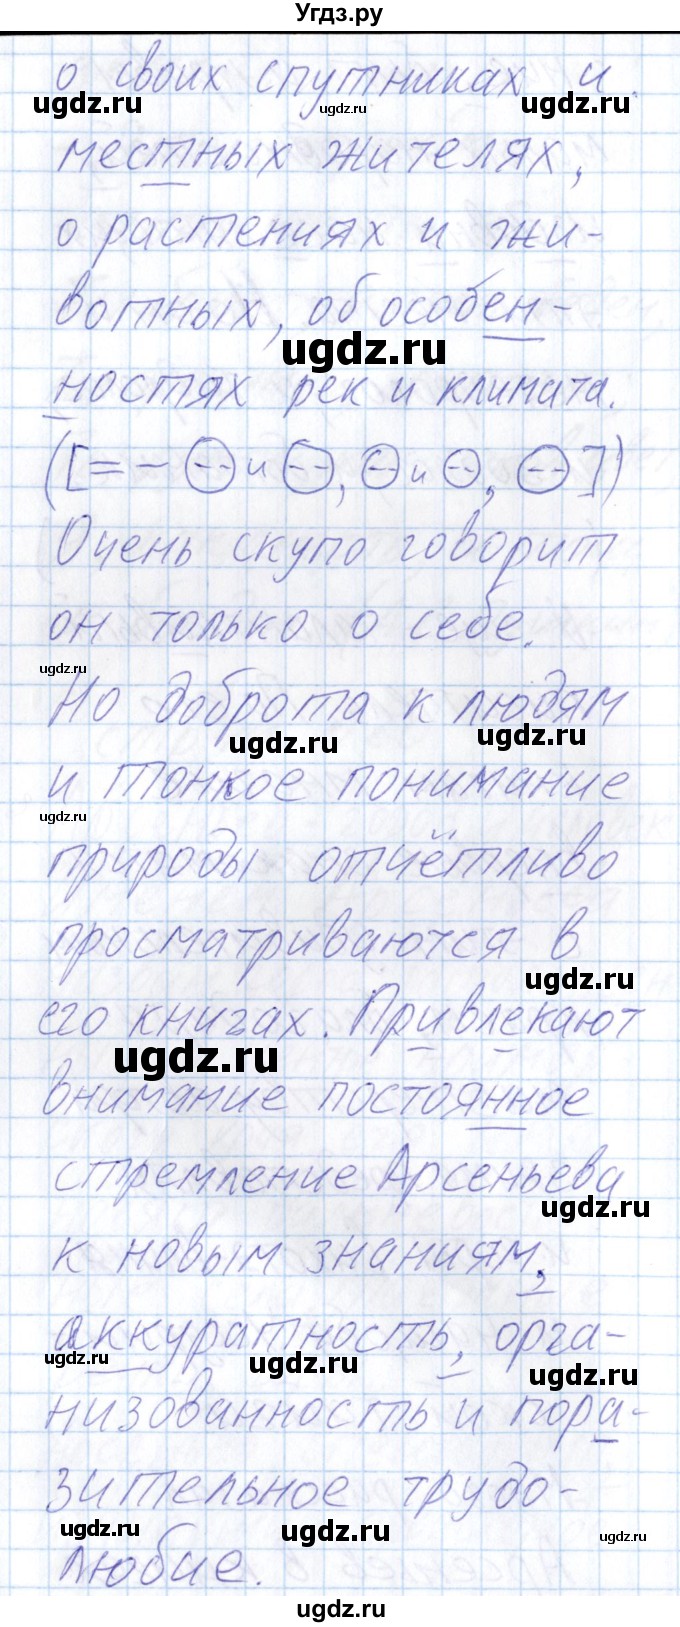 Угдз.ру
о своих спутниках и
ugdz.ru ugdz.ru ugdz.ru
местных жителях,
о растениях и жи-
вотных, об особен-
ugdz.ru
ностях рек и климата.
([= - (--) и (--), (-) и (--), (--)])
Очень скупо говорит
он только о себе.
ugdz.ru
Но доброта к людям
ugdz.ru ugdz.ru
и тонкое понимание
ugdz.ru
природы отчётливо
просматриваются в
ugdz.ru
его книгах. Привлекают
ugdz.ru
внимание постоянное
стремление Арсеньева
ugdz.ru
к новым знаниям,
аккуратность, орга-
ugdz.ru ugdz.ru ugdz.ru
низованность и пора-
зительное трудо-
ugdz.ru ugdz.ru ugdz.ru
любие.
ugdz.ru